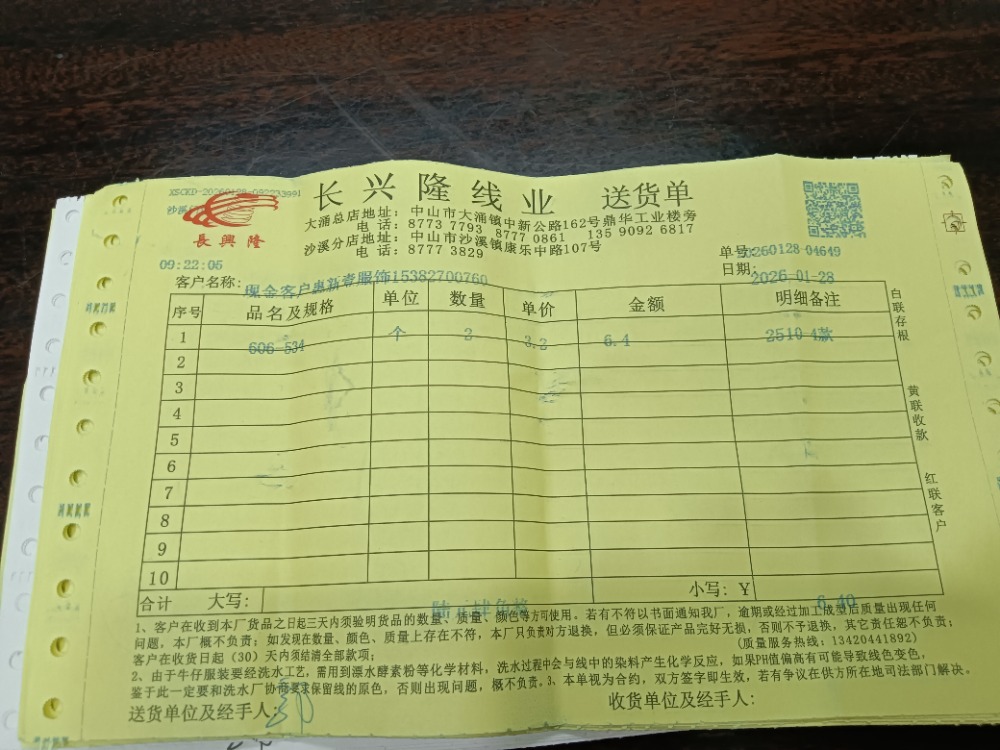 XSCKD-20260128-092233991
長興隆
长兴隆线业 送货单
大涌总店地址: 中山市大涌镇中新公路162号鼎华工业楼旁
电话: 8773 7793 8777 0861 135 9092 6817
沙溪分店地址: 中山市沙溪镇康乐中路107号
电话: 8777 3829
09:22:05
单号:20260128-04649
客户名称: 现金客户 服饰15382700760
日期: 2026-01-28
序号 品名及规格 单位 数量 单价 金额 明细备注
1 606-534 个 2 3.2 6.4 2510-4款
2
3
4
5
6
7
8
9
10
合计 大写: 陆元肆角整 小写: ¥ 6.40
白联存根
黄联收款
红联客户
1、客户在收到本厂货品之日起三天内须验明货品的数量、质量、颜色等方可使用。若有不符以书面通知我厂，逾期或经过加工成型后质量出现任何
问题，本厂概不负责；如发现在数量、颜色、质量上存在不符，本厂只负责对方退换，但必须保证产品完好无损，否则不予退换，其它责任恕不负责；
客户在收货日起（30）天内须结清全部款项；
(质量服务热线: 13420441892)
2、由于牛仔服装要经洗水工艺，需用到漂水酵素粉等化学材料，洗水过程中会与线中的染料产生化学反应，如果PH值偏高有可能导致线色变色，
鉴于此一定要和洗水厂协商要求保留线的原色，否则出现问题，概不负责。3、本单视为合约，双方签字即生效，若有争议在供方所在地司法部门解决。
送货单位及经手人:
收货单位及经手人: